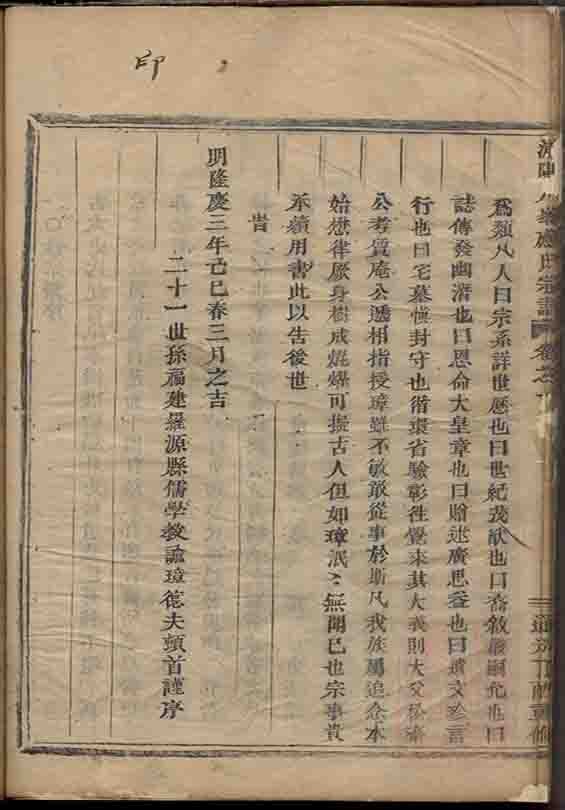 印
宗譜
爲類凡八曰宗系詳世歷也曰世紀茂猷也曰
誌傳發幽潛也曰恩命大皇章也曰贈述廣思也曰遺文
行也曰宅墓愼封守也循環省驗彰往覺來其大義則大父
公考質庵公遞相指授璋雖不敏敢從事於斯凡我族屬追念本
始懋律厥身樹成焜燿可擬古人但如璋泯〻無聞已也宗事貴
承續用書此以告後世
旹
明隆慶三年己巳春三月之吉
二十一世孫福建羅源縣儒學教諭璋德夫頓首謹序